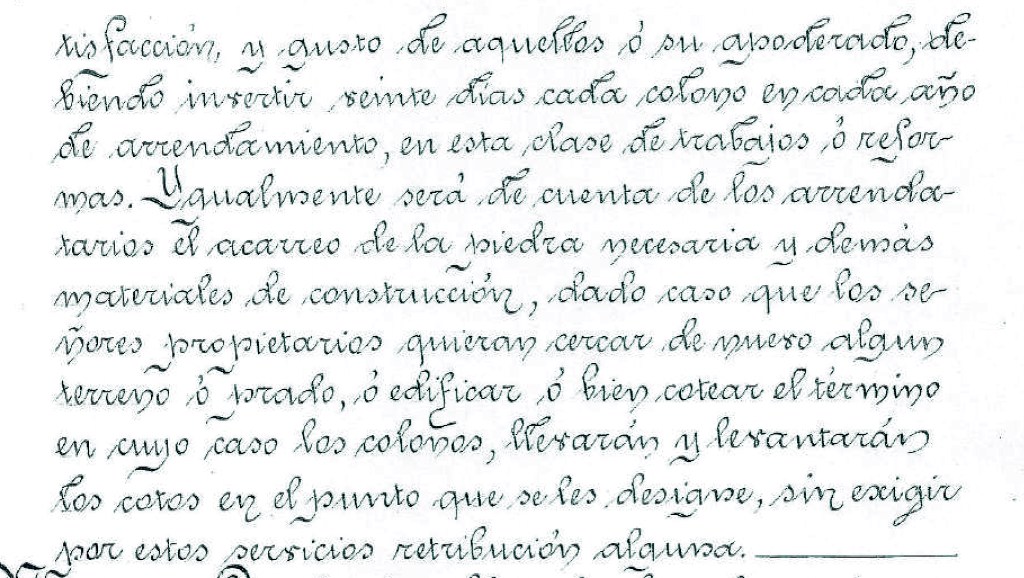 tisfacción, y gusto de aquellos ó su apoderado, de-
biendo invertir veinte días cada colono en cada año
de arrendamiento, en esta clase de trabajos ó refor-
mas. Ygualmente será de cuenta de los arrenda-
tarios el acarreo de la piedra necesaria y demás
materiales de construcción, dado caso que los se-
ñores propietarios quieran cercar de nuevo algun
terreno ó prado, ó edificar ó bien cotear el término
en cuyo caso los colonos, llevarán y levantarán
los cotos en el punto que se les designe, sin exigir
por estos servicios retribución alguna.